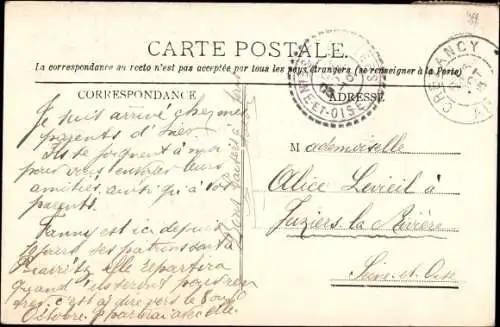 CARTE POSTALE.
La correspondance au recto n'est pas acceptée par tous les pays étrangers (se renseigner à la Poste)
CORRESPONDANCE
ADRESSE
CREZANCY
NE-ET-OISE
Je suis arrivé chez mes
parents d'hier
Ils se joignent à moi
pour vous envoyer leurs
amitiés, ainsi qu'à vos
parents.
Fanny est ici depuis
jours, ses patrons sont à
Biarritz elle repartira
quand ils seront
c'est à dire vers le 8 ou
Octobre. Je partirai avec elle.
Mademoiselle
Alice Levieil à
Juziers la Rivière
Seine-et-Oise